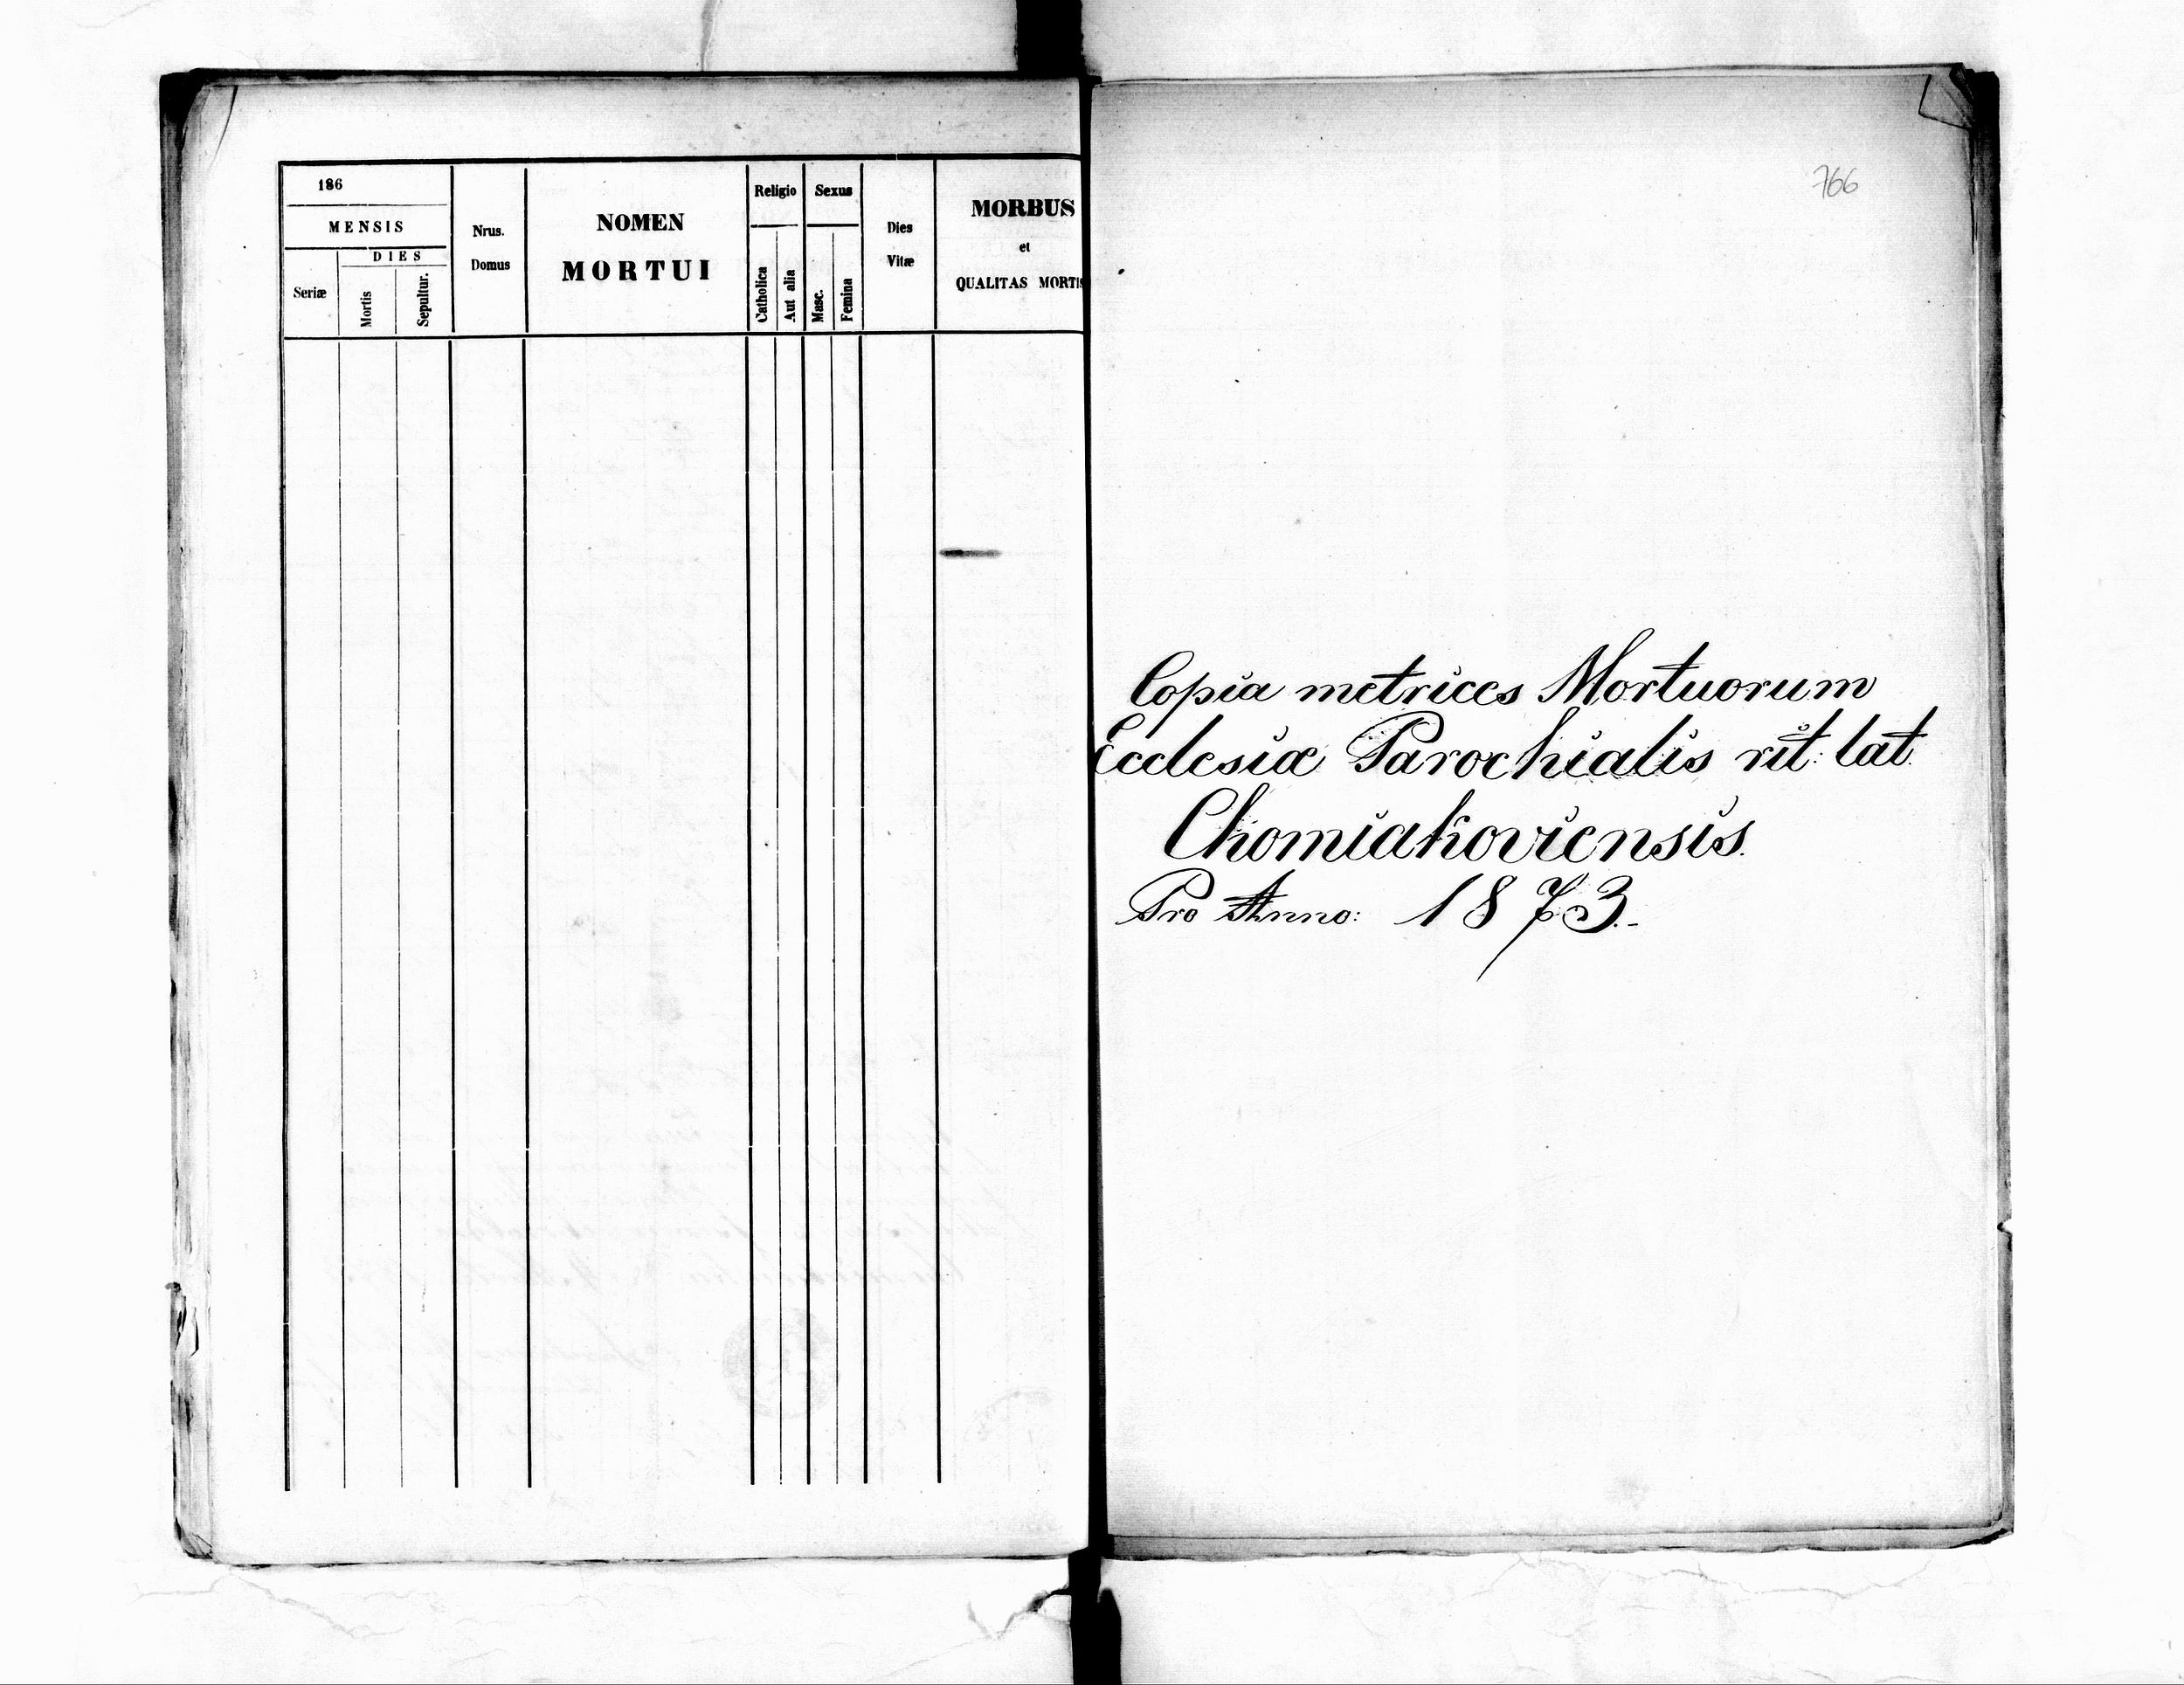 186
MENSIS
DIES
Seriæ
Mortis
Sepultur.
Nrus.
Domus
NOMEN
MORTUI
Religio
Catholica
Aut alia
Sexus
Masc.
Femina
Dies
Vitæ
MORBUS
et
QUALITAS MORTIS
766
Copia metrices Mortuorum
Ecclesiæ Parochialis rit: lat.
Chomiakoviensis.
Pro Anno: 1873.-